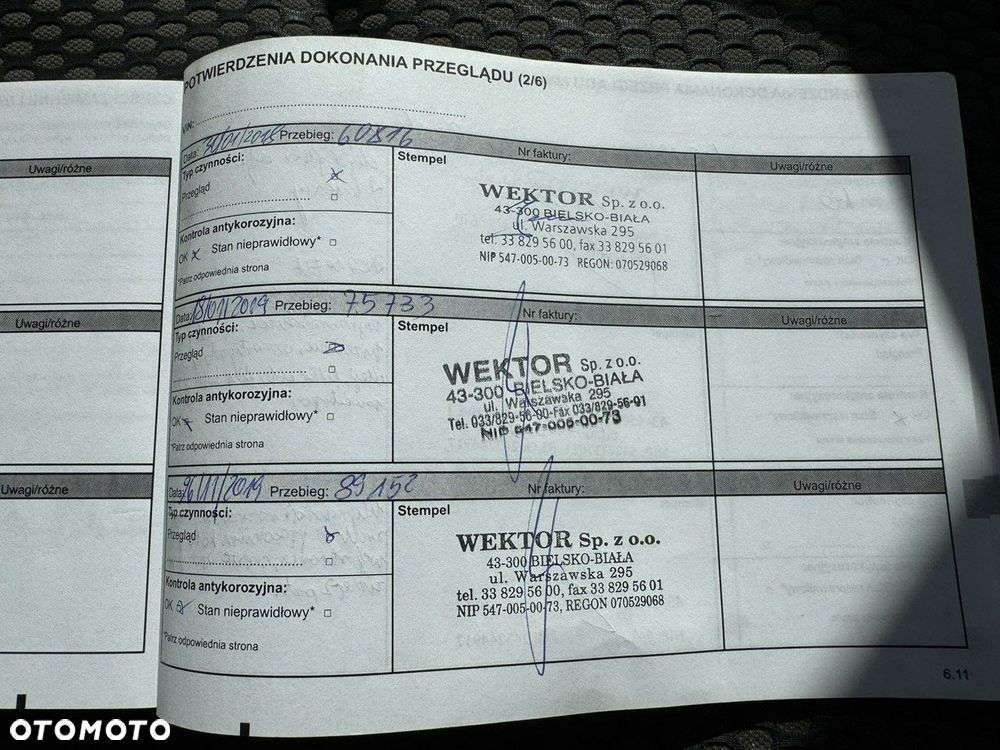 POTWIERDZENIA DOKONANIA PRZEGLĄDU (2/6)
VIN:
Uwagi/różne
Data: 30/01/2018 Przebieg: 60816
Nr faktury:
Uwagi/różne
Typ czynności:
Przegląd
Kontrola antykorozyjna:
OK x Stan nieprawidłowy*
*Patrz odpowiednia strona
Stempel
WEKTOR Sp. z o.o.
43-300 BIELSKO-BIAŁA
ul. Warszawska 295
tel. 33 829 56 00, fax 33 829 56 01
NIP 547-005-00-73 REGON: 070529068
Uwagi/różne
Data: 18/01/2019 Przebieg: 75733
Nr faktury:
Uwagi/różne
Typ czynności:
Przegląd
Kontrola antykorozyjna:
OK x Stan nieprawidłowy*
*Patrz odpowiednia strona
Stempel
WEKTOR Sp. z o.o.
43-300 BIELSKO-BIAŁA
ul. Warszawska 295
Tel. 033/829-56-00-Fax 033/829-56-01
NIP 547-005-00-73
Uwagi/różne
Data: 26/11/2019 Przebieg: 89152
Nr faktury:
Uwagi/różne
Typ czynności:
Przegląd
Kontrola antykorozyjna:
OK Stan nieprawidłowy*
*Patrz odpowiednia strona
Stempel
WEKTOR Sp. z o.o.
43-300 BIELSKO-BIAŁA
ul. Warszawska 295
tel. 33 829 56 00, fax 33 829 56 01
NIP 547-005-00-73, REGON 070529068
6.11
OTOMOTO